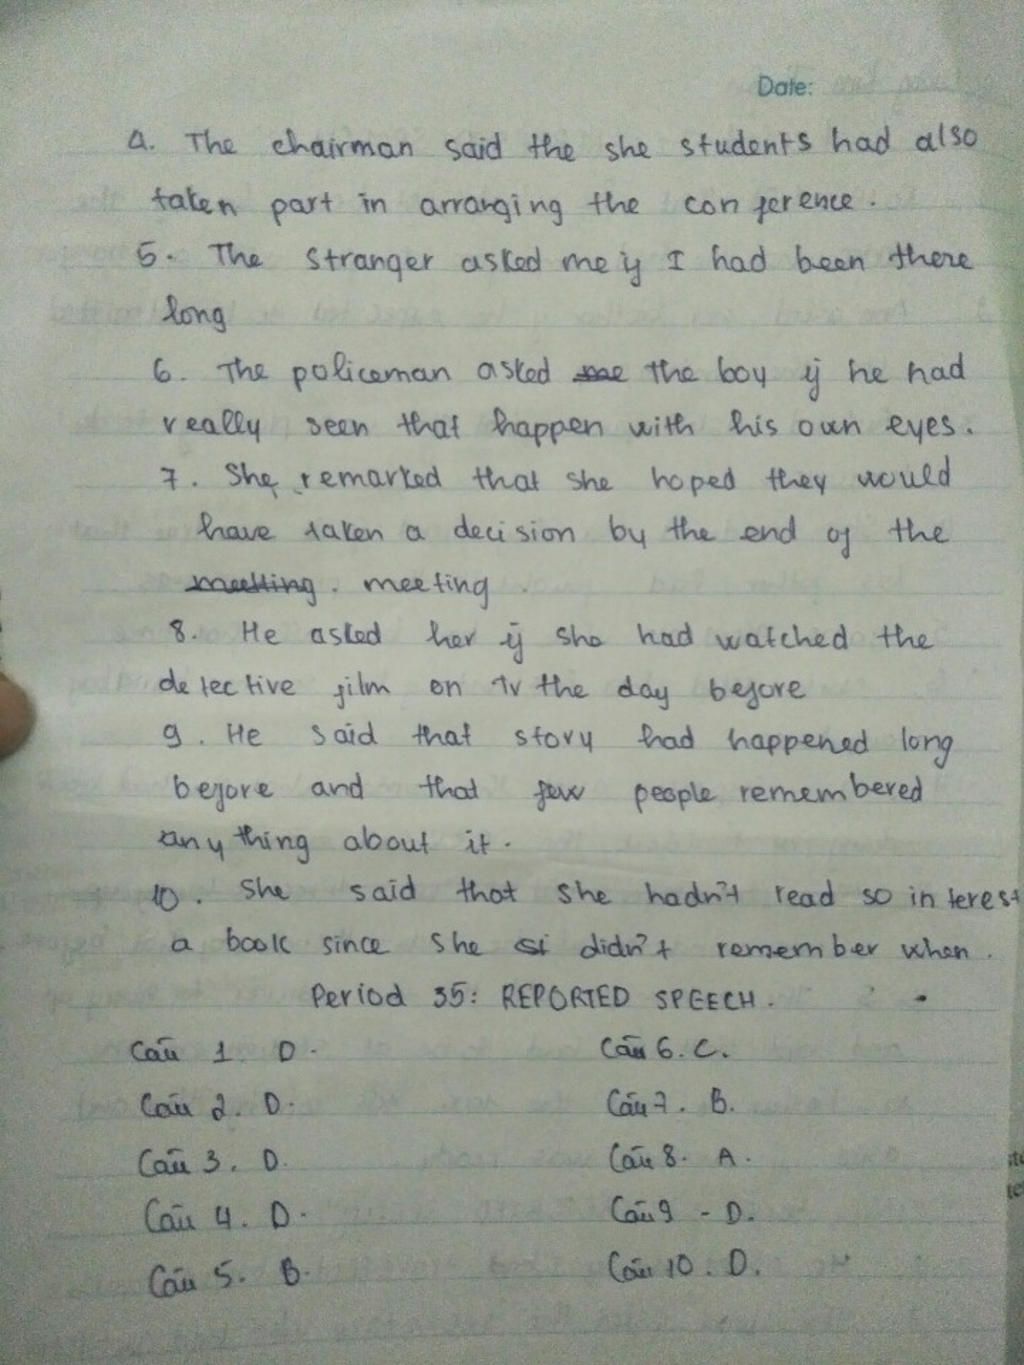 Date:
4. The chairman said the she students had also
taken part in arranging the conference.
5. The Stranger asked me if I had been there
long
6. The policeman asked me the boy if he had
really seen that happen with his own eyes.
7. She remarked that she hoped they would
have taken a decision by the end of the
meetting. meeting.
8. He asked her if she had watched the
detective film on TV the day before
9. He said that story had happened long
before and that few people remembered
anything about it.
10. She said that she hadn't read so interest
a book since she si didn't remember when.
Period 35: REPORTED SPEECH.
Câu 1 D. Câu 6. C.
Câu 2. D. Câu 7. B.
Câu 3. D. Câu 8. A.
Câu 4. D. Câu 9 - D.
Câu 5. B. Câu 10. D.